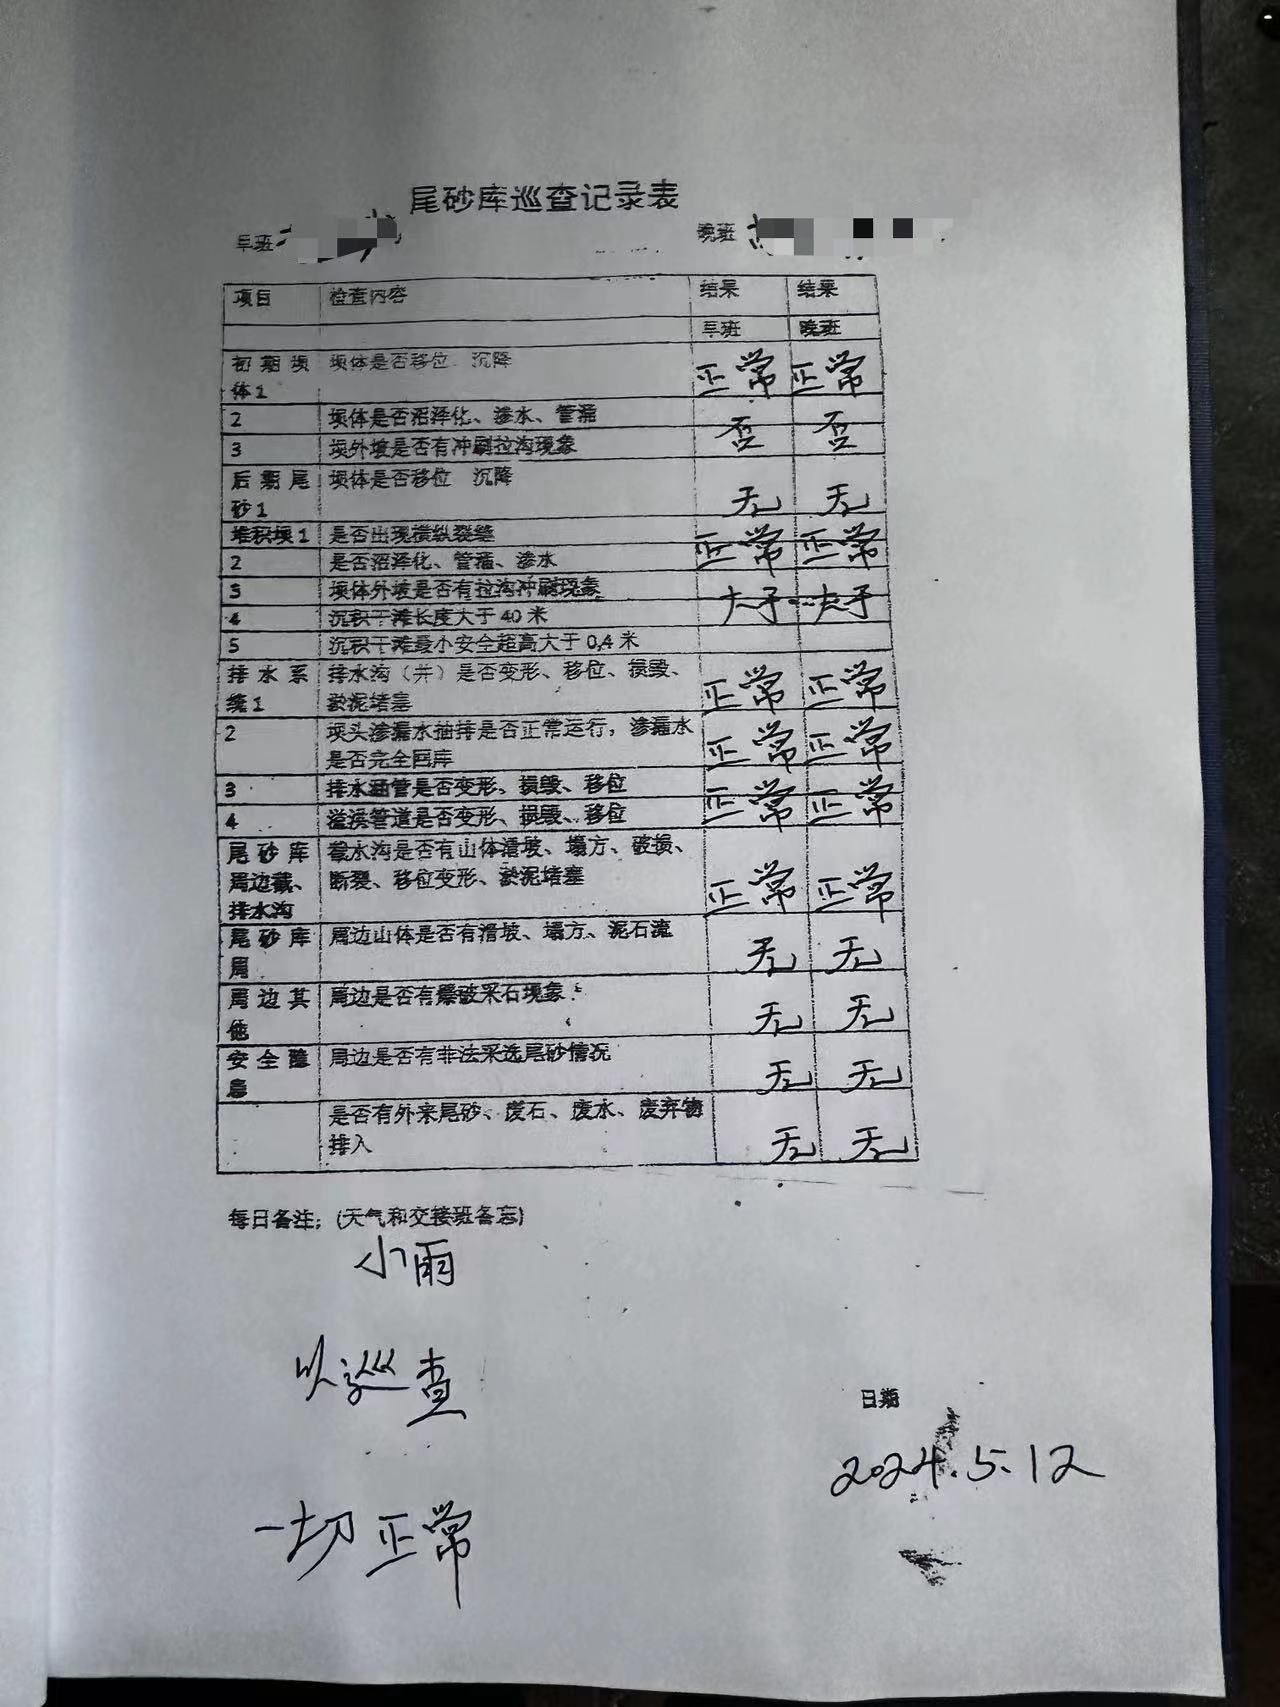 尾砂库巡查记录表
早班 晚班
项目 检查内容 结果 结果
早班 晚班
初期坝体1 坝体是否移位 沉降 正常 正常
2 坝体是否沼泽化、渗水、管涌
否 否
3 坝外坡是否有冲刷拉沟现象
后期尾砂1 坝体是否移位 沉降 无 无
堆积坝1 是否出现横纵裂缝
正常 正常
2 是否沼泽化、管涌、渗水
3 坝体外坡是否有拉沟冲刷现象
大于 大于
4 沉积干滩长度大于40米
5 沉积干滩最小安全超高大于0.4米
排水系统1 排水沟（井）是否变形、移位、损毁、淤泥堵塞 正常 正常
2 坝头渗漏水抽排是否正常运行，渗漏水是否完全回库 正常 正常
3 排水涵管是否变形、损毁、移位
正常 正常
4 溢洪管道是否变形、损毁、移位
尾砂库周边截、排水沟 截水沟是否有山体滑坡、塌方、破损、断裂、移位变形、淤泥堵塞 正常 正常
尾砂库周 周边山体是否有滑坡、塌方、泥石流 无 无
周边其他 周边是否有爆破采石现象 无 无
安全隐患 周边是否有非法采选尾砂情况 无 无
是否有外来尾砂、废石、废水、废弃物排入 无 无
每日备注；(天气和交接班备忘)
小雨
以巡查
日期
2024.5.12
一切正常